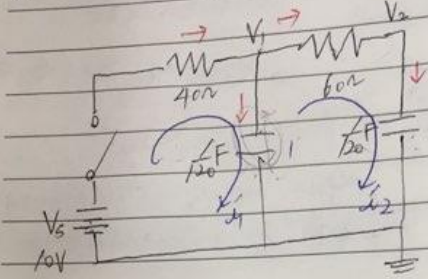 V₁ V₂
40Ω 60Ω
1/120F 1/120F
i₁ i₂
Vs
10V